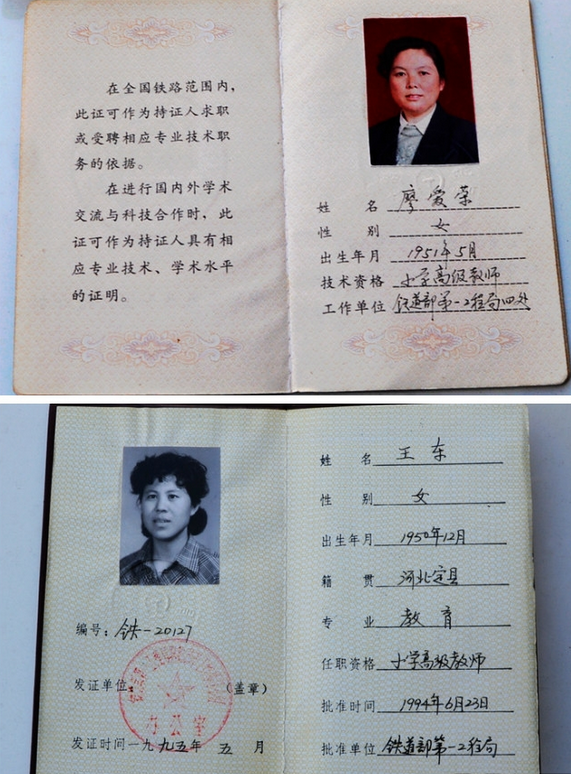 在全国铁路范围内，
此证可作为持证人求职
或受聘相应专业技术职
务的依据。
在进行国内外学术
交流与科技合作时，此
证可作为持证人具有相
应专业技术、学术水平
的证明。
姓 名 廖爱荣
性 别 女
出生年月 1951年5月
技术资格 小学高级教师
工作单位 铁道部第一工程局四处
编号：铁-20127
发证单位 （盖章）
办公室
发证时间一九九五年 五 月
姓 名 王东
性 别 女
出生年月 1950年12月
籍 贯 河北定县
专 业 教育
任职资格 小学高级教师
批准时间 1994年6月23日
批准单位 铁道部第一工程局